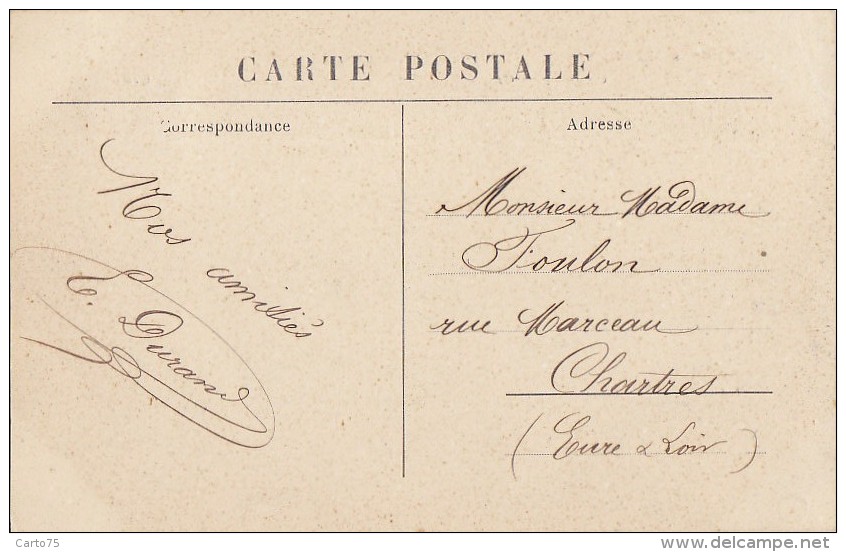 CARTE POSTALE
Correspondance
Nos amitiés
E. Durand
Adresse
Monsieur Madame
Foulon
rue Marceau
Chartres
(Eure & Loir)
Carto75
www.delcampe.net